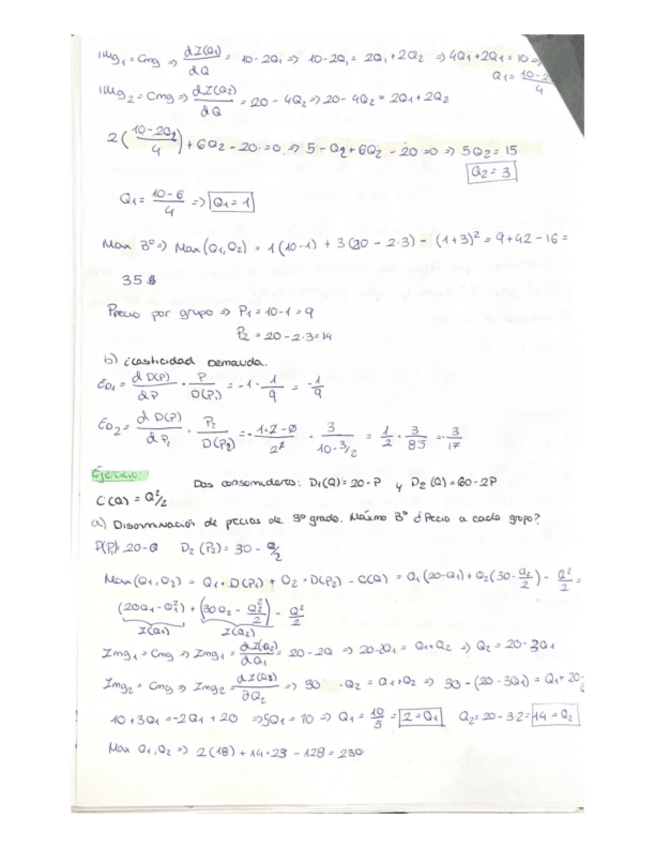 IMg₁ = Cmg ⇒ dI(Q₁)/dQ = 10-2Q₁ ⇒ 10-2Q₁ = 2Q₁+2Q₂ ⇒ 4Q₁+2Q₁ = 10 ⇒
Q₁ = 10-2 / 4
IMg₂ = Cmg ⇒ dI(Q₂)/dQ = 20-4Q₂ ⇒ 20-4Q₂ = 2Q₁+2Q₂
2(10-2Q₂/4) + 6Q₂ - 20 = 0 ⇒ 5-Q₂+6Q₂-20 = 0 ⇒ 5Q₂ = 15
Q₂ = 3
Q₁ = 10-6/4 ⇒ Q₁ = 1
Max Bº ⇒ Max (Q₁,Q₂) = 1(10-1) + 3(20-2·3) - (1+3)² = 9+42-16 =
35 $
Precio por grupo ⇒ P₁ = 10-1 = 9
P₂ = 20-2·3 = 14
b) ¿Elasticidad Demanda.
ED₁ = d D(P)/dP · P/D(P₁) = -1 · 1/9 = -1/9
ED₂ = d D(P)/dP₂ · P₂/D(P₂) = - 1·2-0/2² · 3/10-3/2 = 1/2 · 3/85 = -3/17
Ejercicio: Dos consumidores: D₁(Q) = 20-P y D₂(Q) = 60-2P
C(Q) = Q²/2
a) Discriminación de precios de 3º grado. Máximo Bº ¿Precio a cada grupo?
D(P₁) 20-Q D₂(P₂) = 30 - Q/2
Max (Q₁,Q₂) = Q₁·D(P₁) + Q₂·D(P₂) - C(Q) = Q₁(20-Q₁) + Q₂(30-Q₂/2) - Q²/2 =
(20Q₁-Q₁²) + (30Q₂ - Q₂²/2) - Q²/2
I(Q₁) I(Q₂)
Img₁ = Cmg ⇒ Img₁ = dI(Q₂)/dQ₁ = 20-2Q ⇒ 20-2Q₁ = Q₁+Q₂ ⇒ Q₂ = 20-3Q₁
Img₂ = Cmg ⇒ Img₂ = dI(Q₂)/∂Q₂ ⇒ 30 - Q₂ = Q₁+Q₂ ⇒ 30-(20-3Q₁) = Q₁+20-
10+3Q₁ = -2Q₁+20 ⇒ 5Q₁ = 10 ⇒ Q₁ = 10/5 = 2 = Q₁ Q₂ = 20-3·2 = 14 = Q₂
Max Q₁,Q₂ ⇒ 2(18) + 14·23 - 128 = 230